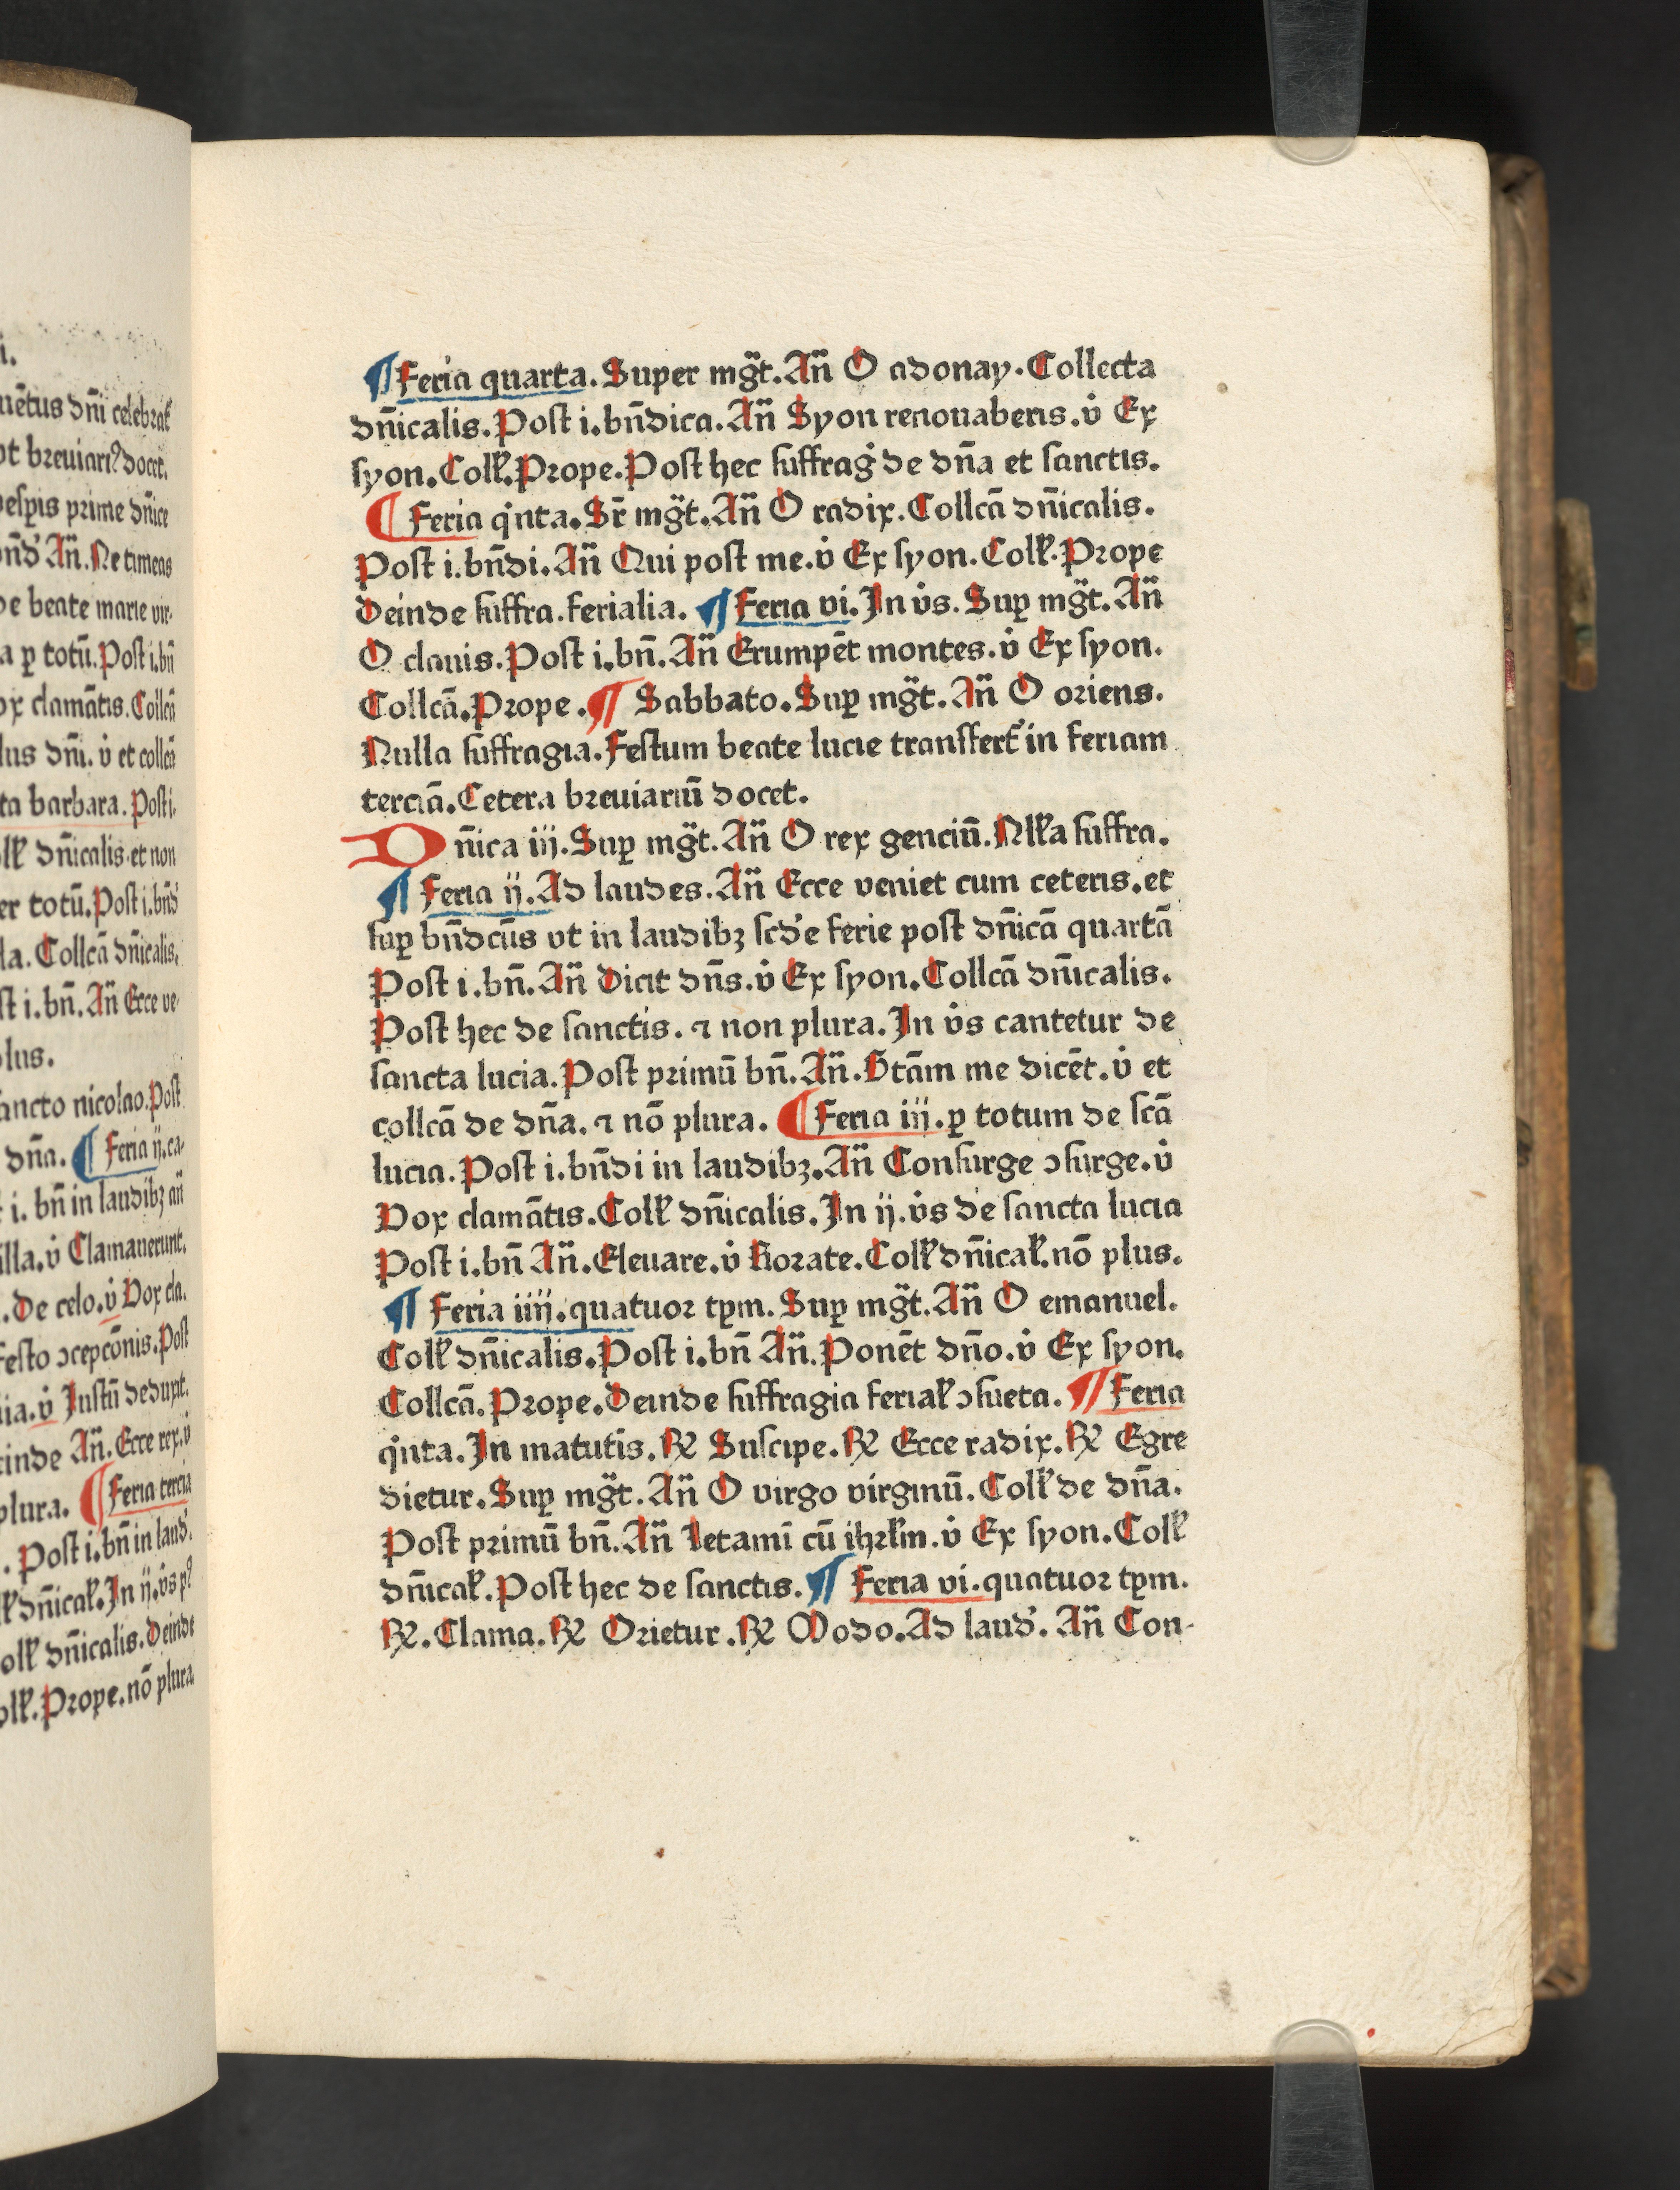 i.
uētus dn̄i celebrat᷑
ut breuiariꝰ docet.
vesꝑis prime dn̄ice
bn̄d᷑ An̄. Ne timeas
de beate marie vir-
a ꝑ totū. Post i. bn̄
ox clamātis. Collcā
lus dn̄i. v̇ et collcā
ta barbara. Post i.
olł dn̄icalis et non
er totū. Post i. bn̄d᷑
la. Collcā dn̄icalis.
st i. bn̄. An̄ Ecce ve-
plus.
ancto nicolao. Post
dn̄a. ¶ Feria ij. ca-
i. bn̄ in laudibꝫ an̄
illa. v̇ Clamauerunt.
. De celo. v̇ Vox cla.
festo ↄcepcōnis. Post
ia. v̇ Iustū deduxit.
einde An̄. Ecce rex. v̇
plura. ¶ Feria tercia
. Post i. bn̄ in laud᷑.
ł dn̄icał. In ij. v̇s pꝰ
olł dn̄icalis. Deinde
olł. Prope. nō plura
¶ Feria quarta. Super mg̃t. An̄ O adonay. Collecta
dn̄icalis. Post i. bn̄dica. An̄ Syon renouaberis. v̇ Ex
syon. Collꝭ. Prope. Post hec suffrag̉ de dn̄a et sanctis.
¶ Feria qͥnta. Sr̄ mg̃t. An̄ O radix. Collcā dn̄icalis.
Post i. bn̄di. An̄ Qui post me. v̇ Ex syon. Collꝭ. Prope
Deinde suffra. ferialia. ¶ Feria vi. In v̇s. Suꝑ mg̃t. An̄
O clauis. Post i. bn̄. An̄ Erumpēt montes. v̇ Ex syon.
Collcā. Prope. ¶ Sabbato. Suꝑ mg̃t. An̄ O oriens.
Nulla suffragia. Festum beate lucie transfert᷑ in feriam
terciā. Cetera breuiariū docet.
Dn̄ica iij. Suꝑ mg̃t. An̄ O rex genciū. Nłła suffra.
¶ Feria ij. Ad laudes. An̄ Ecce veniet cum ceteris. et
suꝑ bn̄dcūs vt in laudibꝫ scd᷑e ferie post dn̄icā quartā
Post i. bn̄. An̄ Dicit dn̄s. v̇ Ex syon. Collcā dn̄icalis.
Post hec de sanctis. ⁊ non plura. In v̇s cantetur de
sancta lucia. Post primū bn̄. An̄. Btām me dicēt. v̇ et
collcā de dn̄a. ⁊ nō plura. ¶ Feria iij. ꝑ totum de scā
lucia. Post i. bn̄di in laudibꝫ. An̄ Consurge ↄsurge. v̇
Vox clamātis. Collꝭ dn̄icalis. In ij. v̇s de sancta lucia
Post i. bn̄ An̄. Eleuare. v̇ Rorate. Collꝭ dn̄icał. nō plus.
¶ Feria iiij. quatuor tꝑm. Suꝑ mg̃t. An̄ O emanuel.
Collꝭ dn̄icalis. Post i. bn̄ An̄. Ponēt dn̄o. v̇ Ex syon.
Collcā. Prope. Deinde suffragia feriał ↄsueta. ¶ Feria
qͥnta. In matutīs. ℞ Suscipe. ℞ Ecce radix. ℞ Egre
dietur. Suꝑ mg̃t. An̄ O virgo virginū. Collꝭ de dn̄a.
Post primū bn̄. An̄ Letamī cū ihrłm. v̇ Ex syon. Collꝭ
dn̄icał. Post hec de sanctis. ¶ Feria vi. quatuor tꝑm.
℞. Clama. ℞ Orietur. ℞ Modo. Ad laud᷑. An̄ Con-